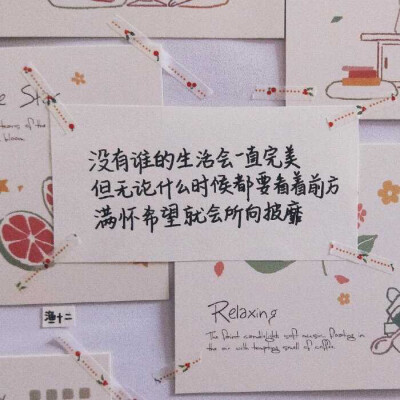 e Star
没有谁的生活会一直完美
但无论什么时候都要看着前方
满怀希望就会所向披靡
渔十二
Relaxing
The faint candlelight soft music. Floating in
the air with tempting smell of coffee.